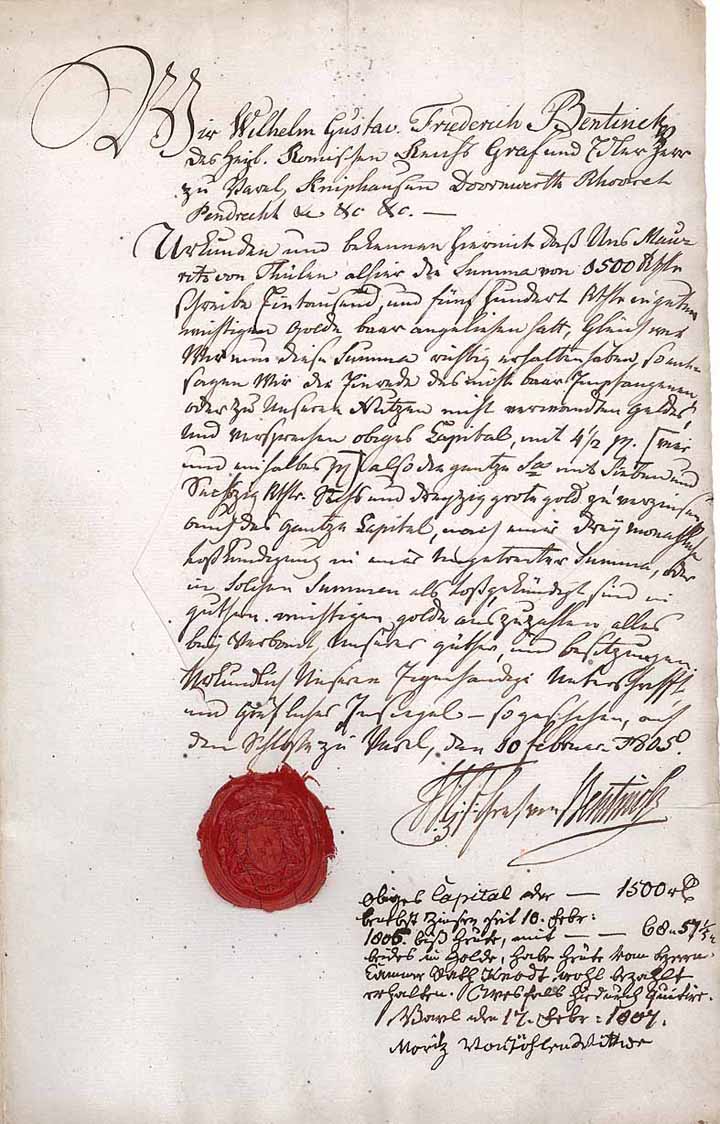 Wir Wilhelm Gustav. Friederich Bentinck
des heyl. Römischen Reichs Graf und Edler Herr
zu Varel, Kniphausen Doorwerth Rhoon et
Pendrecht &c &c &c. —
Urkunden und bekennen hiermit daß Uns Mau-
ritz von Thülen alhier die Summa von 1500 Rthlr
schreibe Eintausend, und fünf hundert Rthlr in guten
wichtigen Golde baar angeliehen hatt, Gleich wie
Wir nun diese Summa richtig erhalten haben, so ent-
sagen Wir der Einrede des nicht baar Empfangenen,
oder zu Unseren Nutzen nicht verwandten Geldes,
und versprechen obiges Capital, mit 4 1/2 pc. [vier
und einhalbes pc] also die gantze Sa mit Sieben und
Sechszig Rthlr. Sechs und dreyzig grote gold zu verzinsen
auch das gantze Capital, nach einer drey monathliche
Loßkündigung in einer ungetrenter Summa, oder
in solchen Summen als loßgekündigt sind in
guthen wichtigen golde auszuzahlen alles
bey Verband Unserer güther, und besitzungen
Urkundlich Unseren Eigenhändigen Unterschrifft
und Gräflichen Insiegel — so geschehen, auf
dem Schloße zu Varel, den 10 februar 1805.
Graf von Bentinck
Obiges Capital der — 1500 r
benebst Zinsen seit 10. Febr:
biß heute, mit — — 68 „ 57 1/2
beides in Golde, habe heute vom Herrn
Cammer Rath wohl bezahlt
erhalten. Weshalb hiedurch quitire.
Varel den 17. Febr: 1807.
Moritz von Töhlen Wittwe